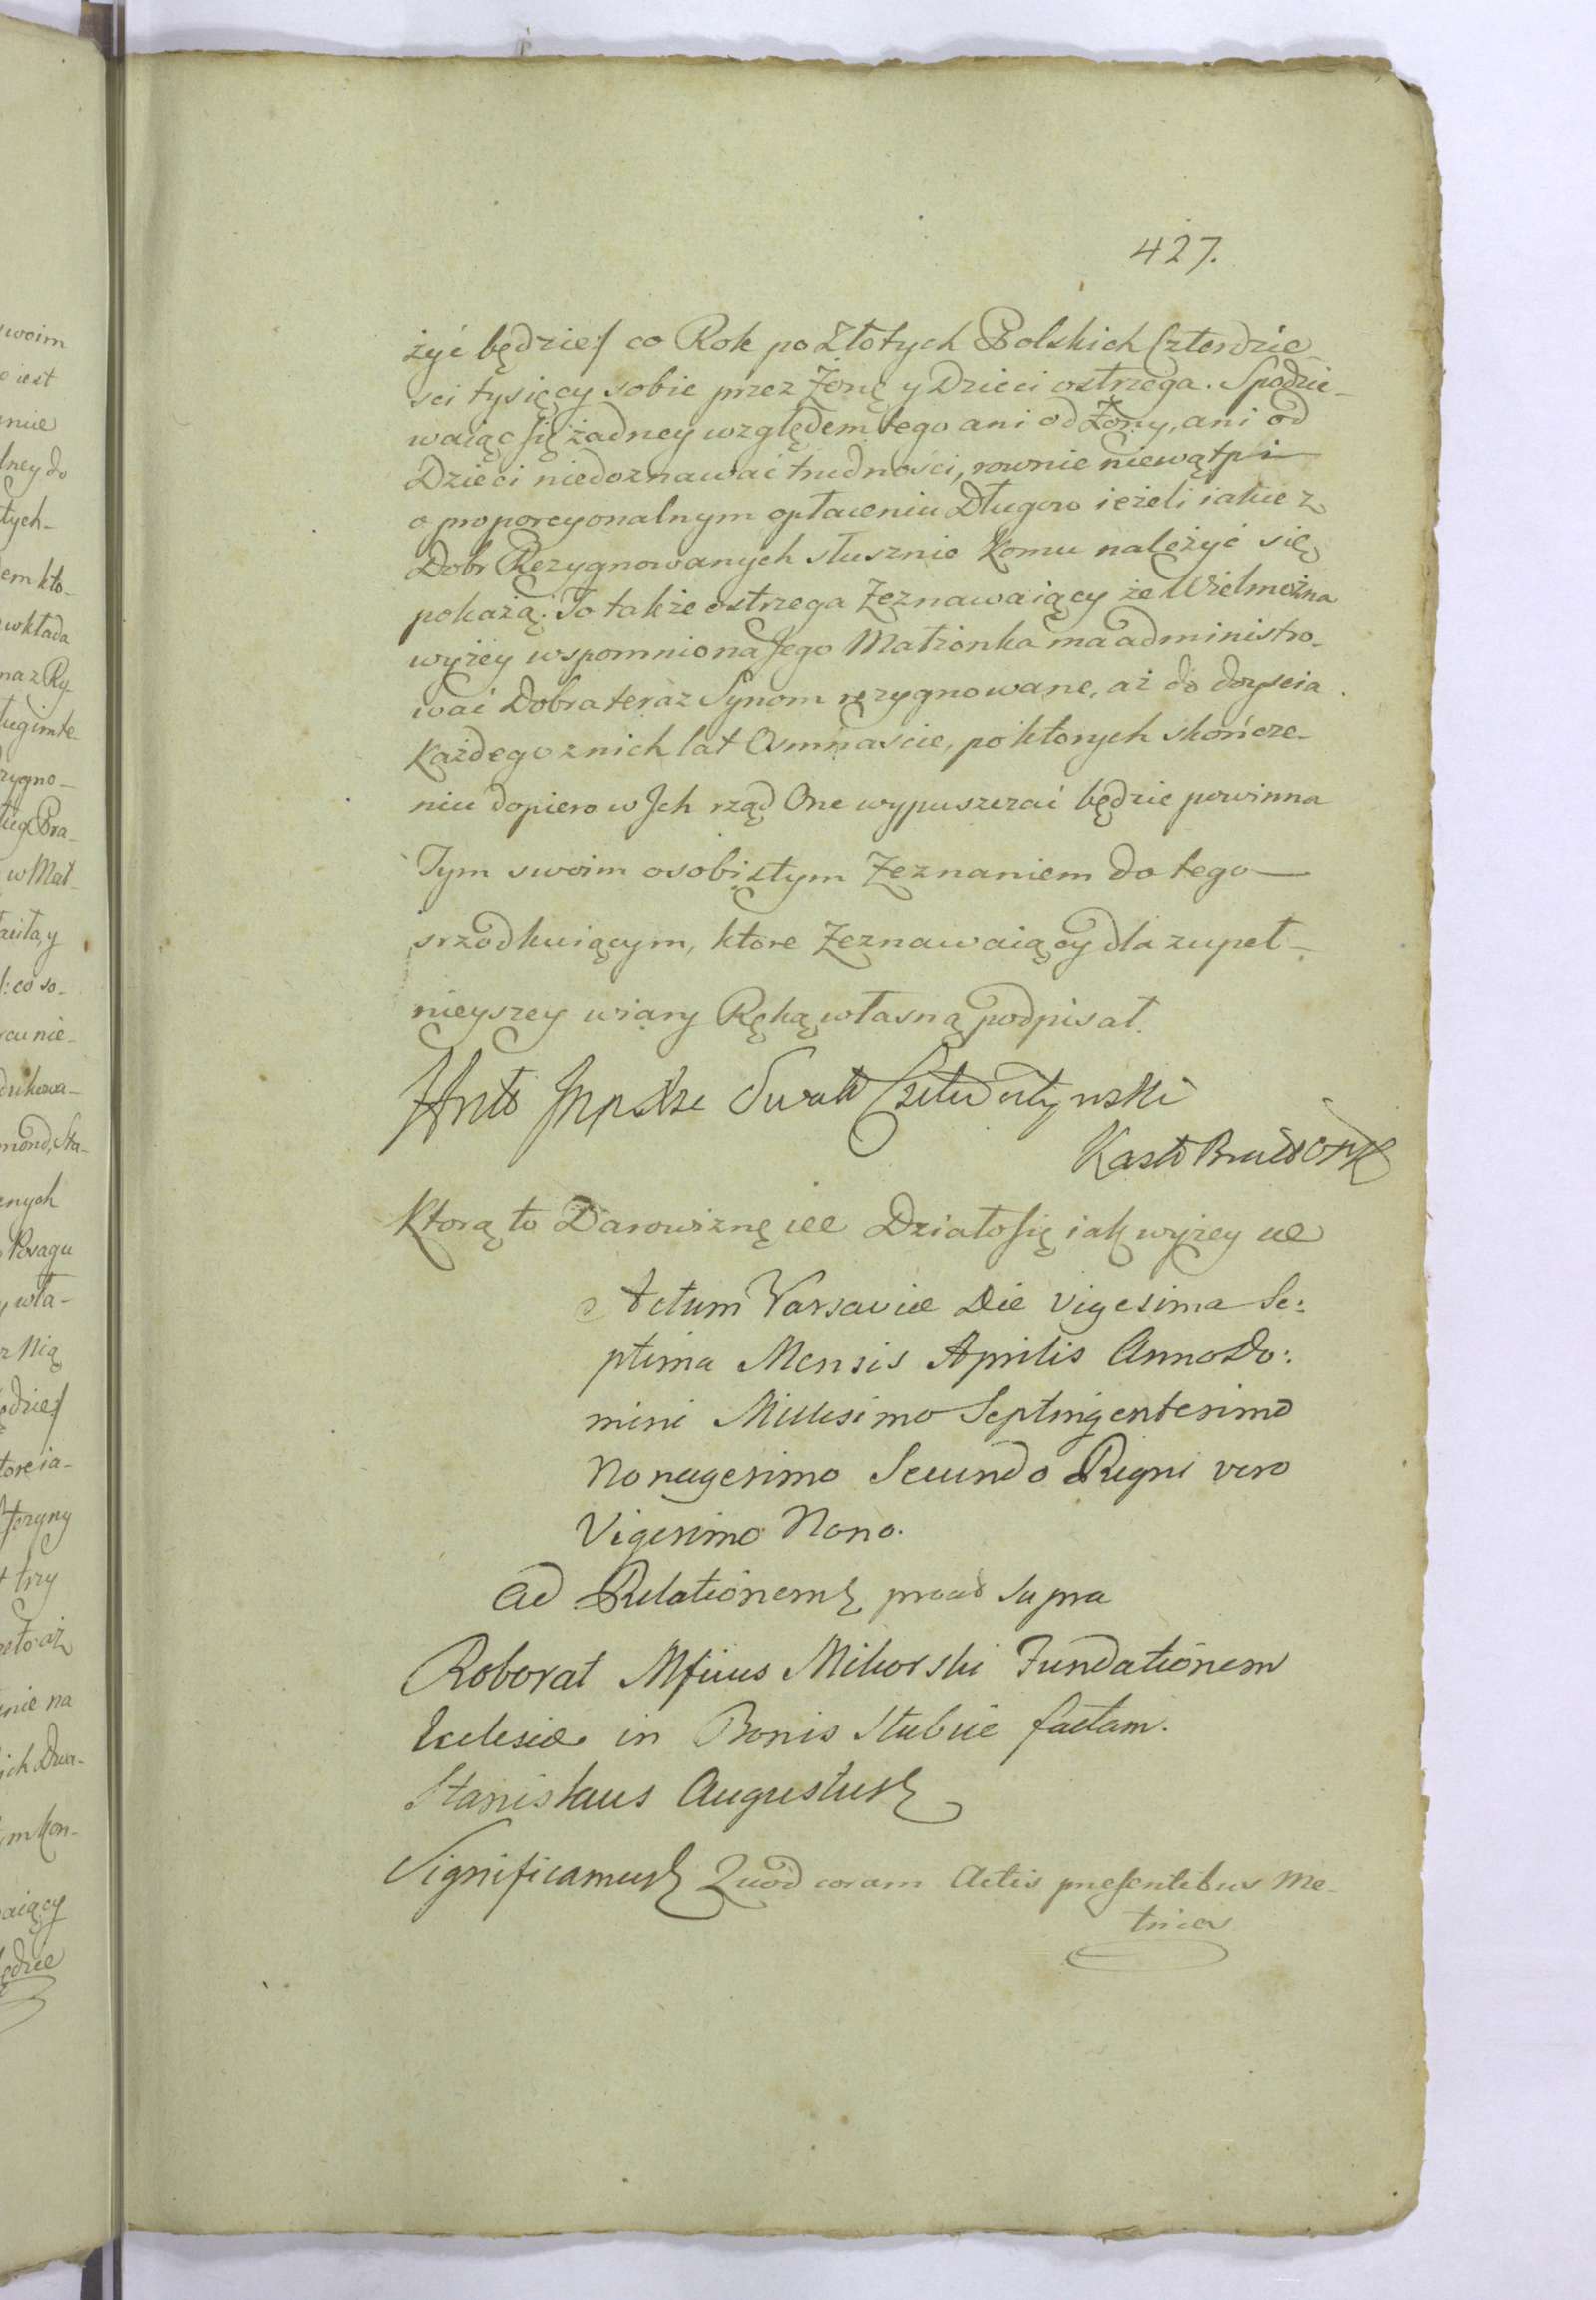 427.
żyć będzie:/ co Rok po Złotych Polskich Czterdzie-
sci tysięcy sobie przez Żonę y Dzieci ostrzega. Spodzie-
waiąc się żadney względem tego ani od Żony, ani od
Dzieci niedoznawać trudności, rownie niewątpi
o proporcyonalnym opłaceniu Długow ieżeli iakie z
Dobr Rezygnowanych słusznie komu należyć się
pokażą. To także ostrzega Zeznawaiący że Wielmożna
wyżey wspomniona Jego Małżonka ma administro-
wać Dobra teraz Synom rezygnowane, aż do doyscia
każdego z nich lat Osmnascie, po ktorych skończe-
niu dopiero w Jch rząd One wypuszczać będzie powinna
Tym swoim osobistym Zeznaniem do tego
srzodkuiącym, ktore Zeznawaiący dla zupeł-
nieyszey wiary Ręką własną podpisał.
Czetwertynski
Kaszt
Ktorą to Darowiznę etc Działo się iak wyżey etc
Actum Varsaviæ Die vigesima Se:
ptima Mensis Aprilis Anno Do:
mini Millesimo Septingentesimo
Nonagesimo Secundo Regni vero
Vigesimo Nono.
Ad Relationem etc prout supra
Roborat Mfcus Mikorski Fundationem
Ecclesiæ in Bonis Słubice factam.
Stanislaus Augustus etc
Significamus etc Quod coram Actis præsentibus Me-
trices